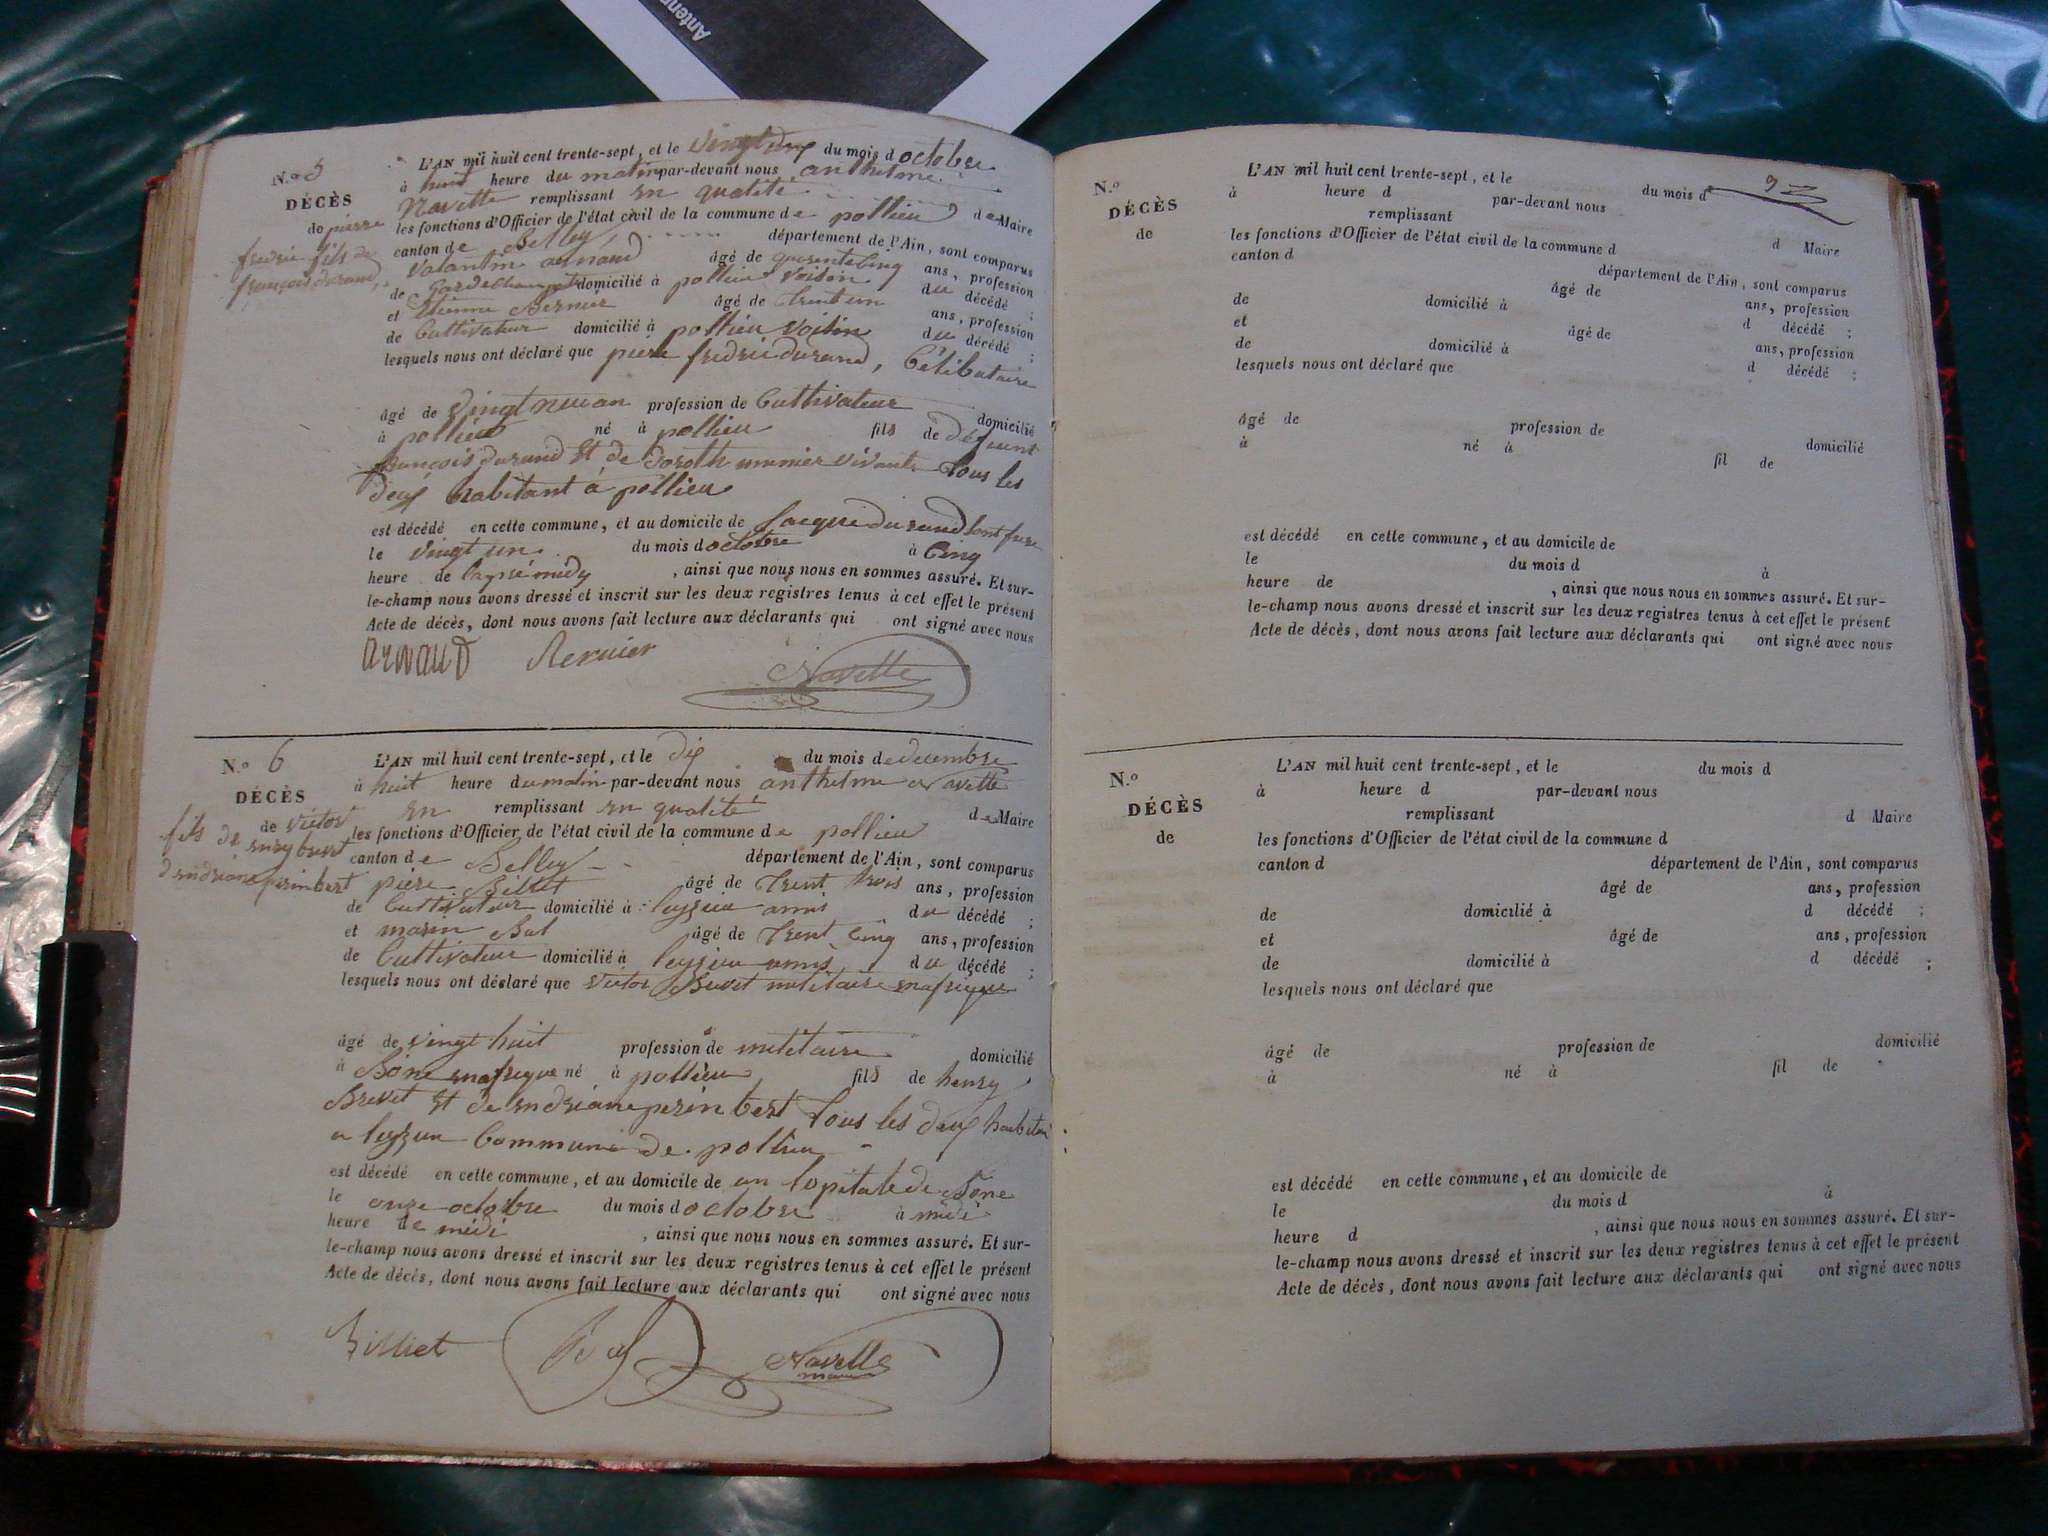 Antenn
N.º 5
DÉCÈS
de pierre
fredric fils de
françois durand,
L'AN mil huit cent trente-sept, et le Vingt deux du mois d octobre
à huit heure du matin par-devant nous anthelme
Navette remplissant en qualité de Maire
les fonctions d'Officier de l'état civil de la commune de pollieu
canton de Belley département de l'Ain, sont comparus
Valantin arnaud âgé de quarente Cinq ans, profession
de Garde Champetre domicilié à pollieu Voison du décédé ;
et Etienne Bernier âgé de trente un ans, profession
de Cultivateur domicilié à pollieu Voisin du décédé ;
lesquels nous ont déclaré que piere fredric durand, Célibataire
âgé de Vingt neuf an profession de Cultivateur domicilié
à pollieu né à pollieu fils de défunt
françois durand Et de doroth munier vivante Tous les
deux habitant à pollieu
est décédé en cette commune, et au domicile de Jacque durand sont frere
le Vingt un du mois d octobre à Cinq
heure de laprémidy , ainsi que nous nous en sommes assuré. Et sur-
le-champ nous avons dressé et inscrit sur les deux registres tenus à cet effet le présent
Acte de décès, dont nous avons fait lecture aux déclarants qui ont signé avec nous
arnaud Bernier Navette
N.º 6
DÉCÈS
de victor
fils de henry brevet
d'endriane perin bert
L'AN mil huit cent trente-sept, et le dix du mois de decembre
à huit heure du matin par-devant nous anthelme Navette
en remplissant en qualité de Maire
les fonctions d'Officier de l'état civil de la commune de pollieu
canton de Belley département de l'Ain, sont comparus
piere Billet âgé de Trent trois ans, profession
de Cultivateur domicilié à leyzieu amis du décédé ;
et marin Bal âgé de Trent Cinq ans, profession
de Cultivateur domicilié à leyzieu amis du décédé ;
lesquels nous ont déclaré que victor Brevet militaire enafrique
âgé de vingt huit profession de militaire domicilié
à Bone enafrique né à pollieu fils de henry
Brevet Et de endriane perin bert Tous les deux habitan
a leyzieu Commune de pollieu
est décédé en cette commune, et au domicile de an lopitale de Bone
le onze octobre du mois d octobre à midi
heure de midi , ainsi que nous nous en sommes assuré. Et sur-
le-champ nous avons dressé et inscrit sur les deux registres tenus à cet effet le présent
Acte de décès, dont nous avons fait lecture aux déclarants qui ont signé avec nous
Billiet Bal Navette
maire
9
N.º
DÉCÈS
de
L'AN mil huit cent trente-sept, et le du mois d
à heure d par-devant nous
remplissant d Maire
les fonctions d'Officier de l'état civil de la commune d
canton d département de l'Ain, sont comparus
âgé de ans, profession
de domicilié à d décédé ;
et âgé de ans, profession
de domicilié à d décédé ;
lesquels nous ont déclaré que
âgé de profession de domicilié
à né à fil de
est décédé en cette commune, et au domicile de
le du mois d à
heure de , ainsi que nous nous en sommes assuré. Et sur-
le-champ nous avons dressé et inscrit sur les deux registres tenus à cet effet le présent
Acte de décès, dont nous avons fait lecture aux déclarants qui ont signé avec nous
N.º
DÉCÈS
de
L'AN mil huit cent trente-sept, et le du mois d
à heure d par-devant nous
remplissant d Maire
les fonctions d'Officier de l'état civil de la commune d
canton d département de l'Ain, sont comparus
âgé de ans, profession
de domicilié à d décédé ;
et âgé de ans, profession
de domicilié à d décédé ;
lesquels nous ont déclaré que
âgé de profession de domicilié
à né à fil de
est décédé en cette commune, et au domicile de
le du mois d à
heure d , ainsi que nous nous en sommes assuré. Et sur-
le-champ nous avons dressé et inscrit sur les deux registres tenus à cet effet le présent
Acte de décès, dont nous avons fait lecture aux déclarants qui ont signé avec nous